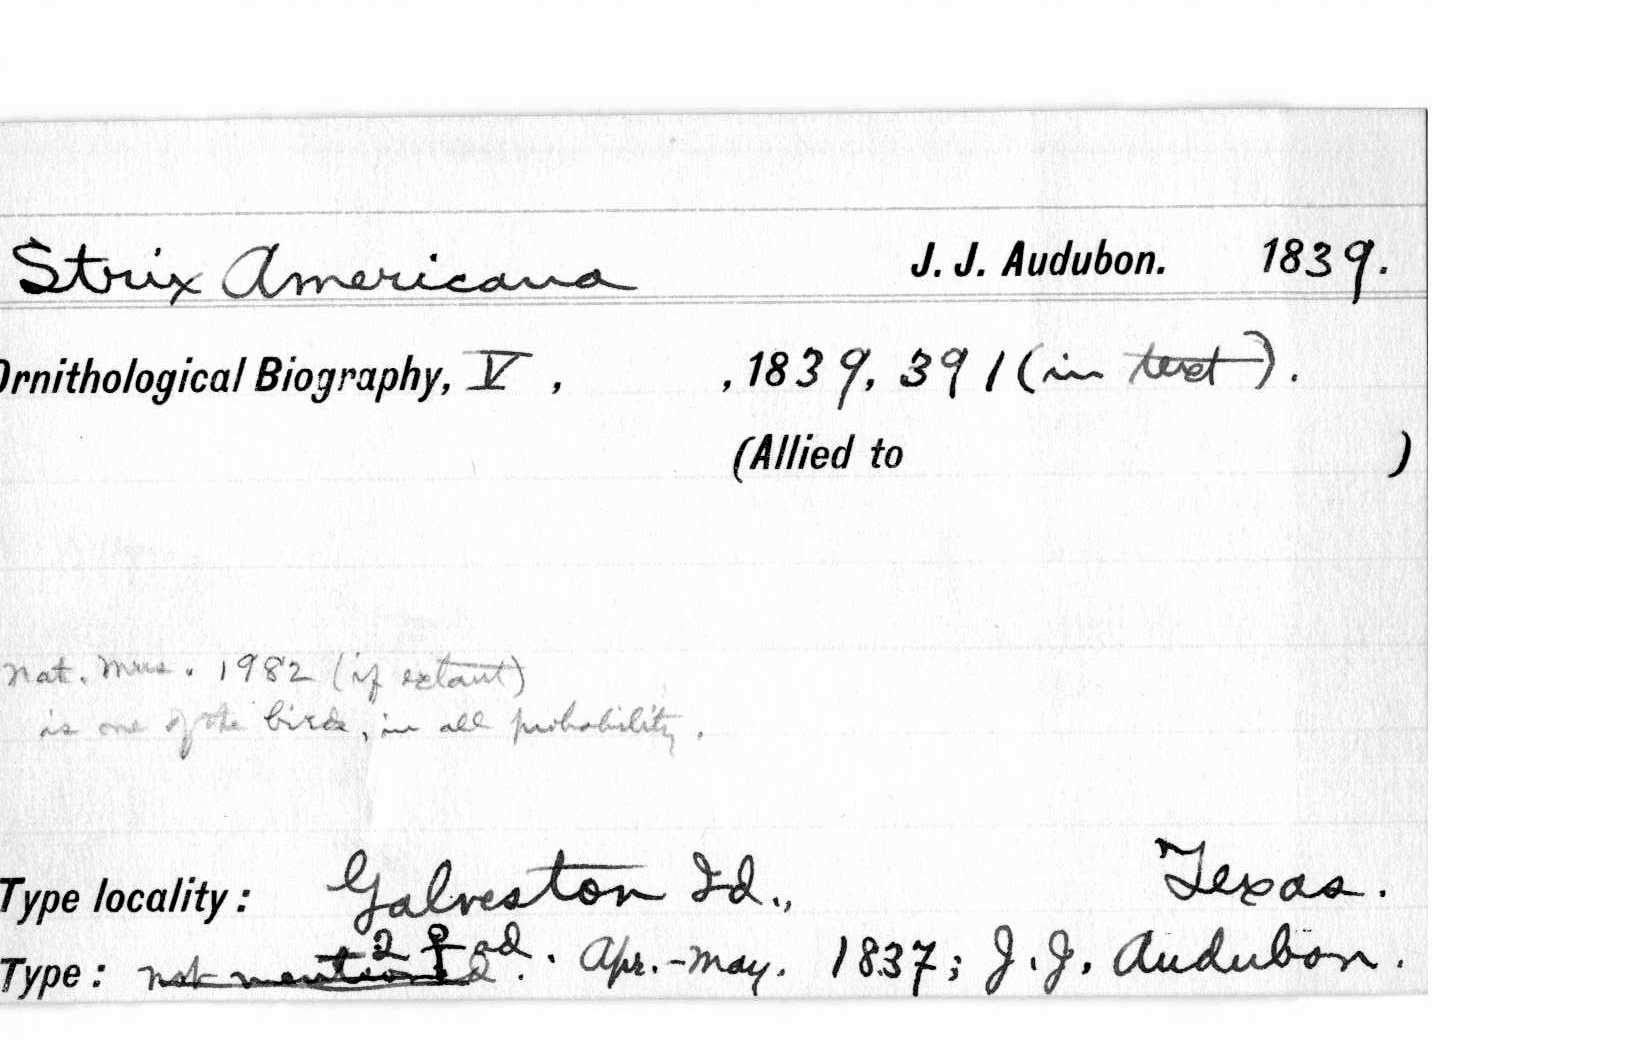 Strix Americana J. J. Audubon. 1839.
Ornithological Biography, V , , 1839, 391 (in text).
(Allied to )
Nat. Mus. 1982 (if extant)
is one of the birds, in all probability.
Type locality: Galveston Id., Texas.
2 ♀ ad.
Type: not mentioned. Apr.-May. 1837; J. J. Audubon.